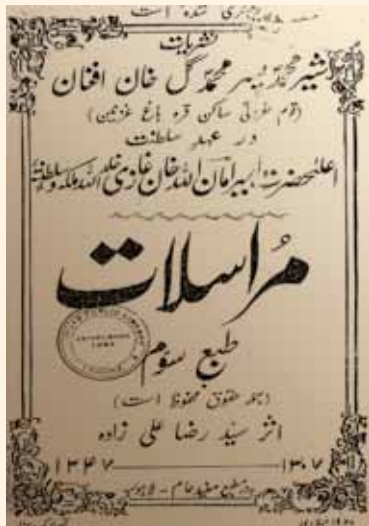 رجستری شده است
نشریات
شیر محمد پسر محمد گل خان افغان
(قوم غزنی ساکن قره باغ غزنین)
در عهد سلطنت
اعلیحضرت امیر امان الله خان غازی خلد الله ملکه و سلطنته
مراسلات
طبع سوم
(همه حقوق محفوظ است)
اثر سید رضا علی زاده
۱۳۰۷ ۱۳۴۷
مطبع مفید عام - لاهور